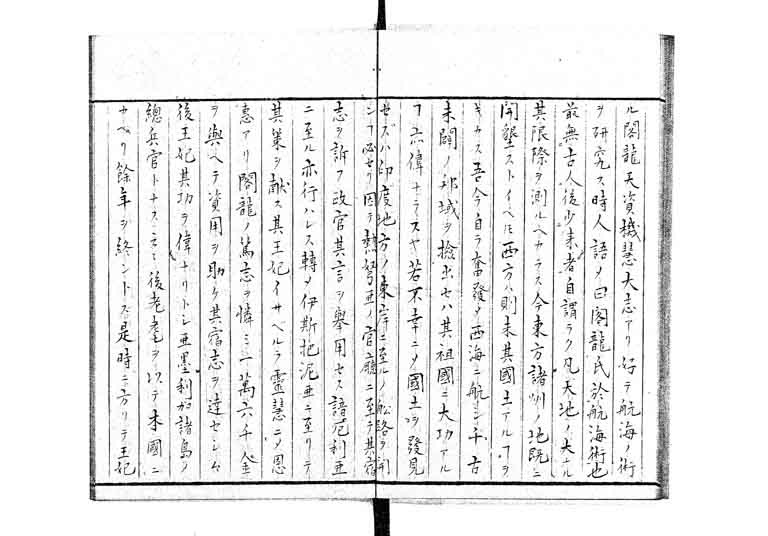 ル閣龍天資機慧大志アリ好テ航海ノ術
ヲ研究ス時人語メ曰閣龍氏於航海術也
前無古人後少来者自謂ラク凡天地ノ大ナル
其限際ヲ測ルヘカラス今東方諸州ノ地既ニ
開墾ストイヘ𪜈西方ハ則未其國土アルヿヲ
キカス吾今自ラ奮發メ西海ニ航シ千古
未闢ノ邦域ヲ捡出セハ其祖國ニ大功アル
ヿ亦偉ナラスヤ若不幸ニメ國土ヲ發見
セズハ印度地方ノ東岸ニ至ルノ舩路ヲ開
シヿ必セリ因テ熱弩亜ノ官廳ニ至テ其宿
志ヲ訴フ政官其言ヲ擧用セス諳厄利亜
ニ至ル亦行ハレス轉メ伊斯把泥亜ニ至リテ
其策ヲ献ス其王妃イサベルラ靈慧ニメ恩
恵アリ閣龍ノ篤志ヲ憐ミ一萬六千金
ヲ與ヘテ資用ヲ助ケ其宿志ヲ達セシム
後王妃其功ヲ偉ナリトシ亜墨利加諸島ノ
總兵官トナス之ニ後老耄ヲ以テ本國ニ
カヘリ餘年ヲ終ントス是時ニ方リテ王妃